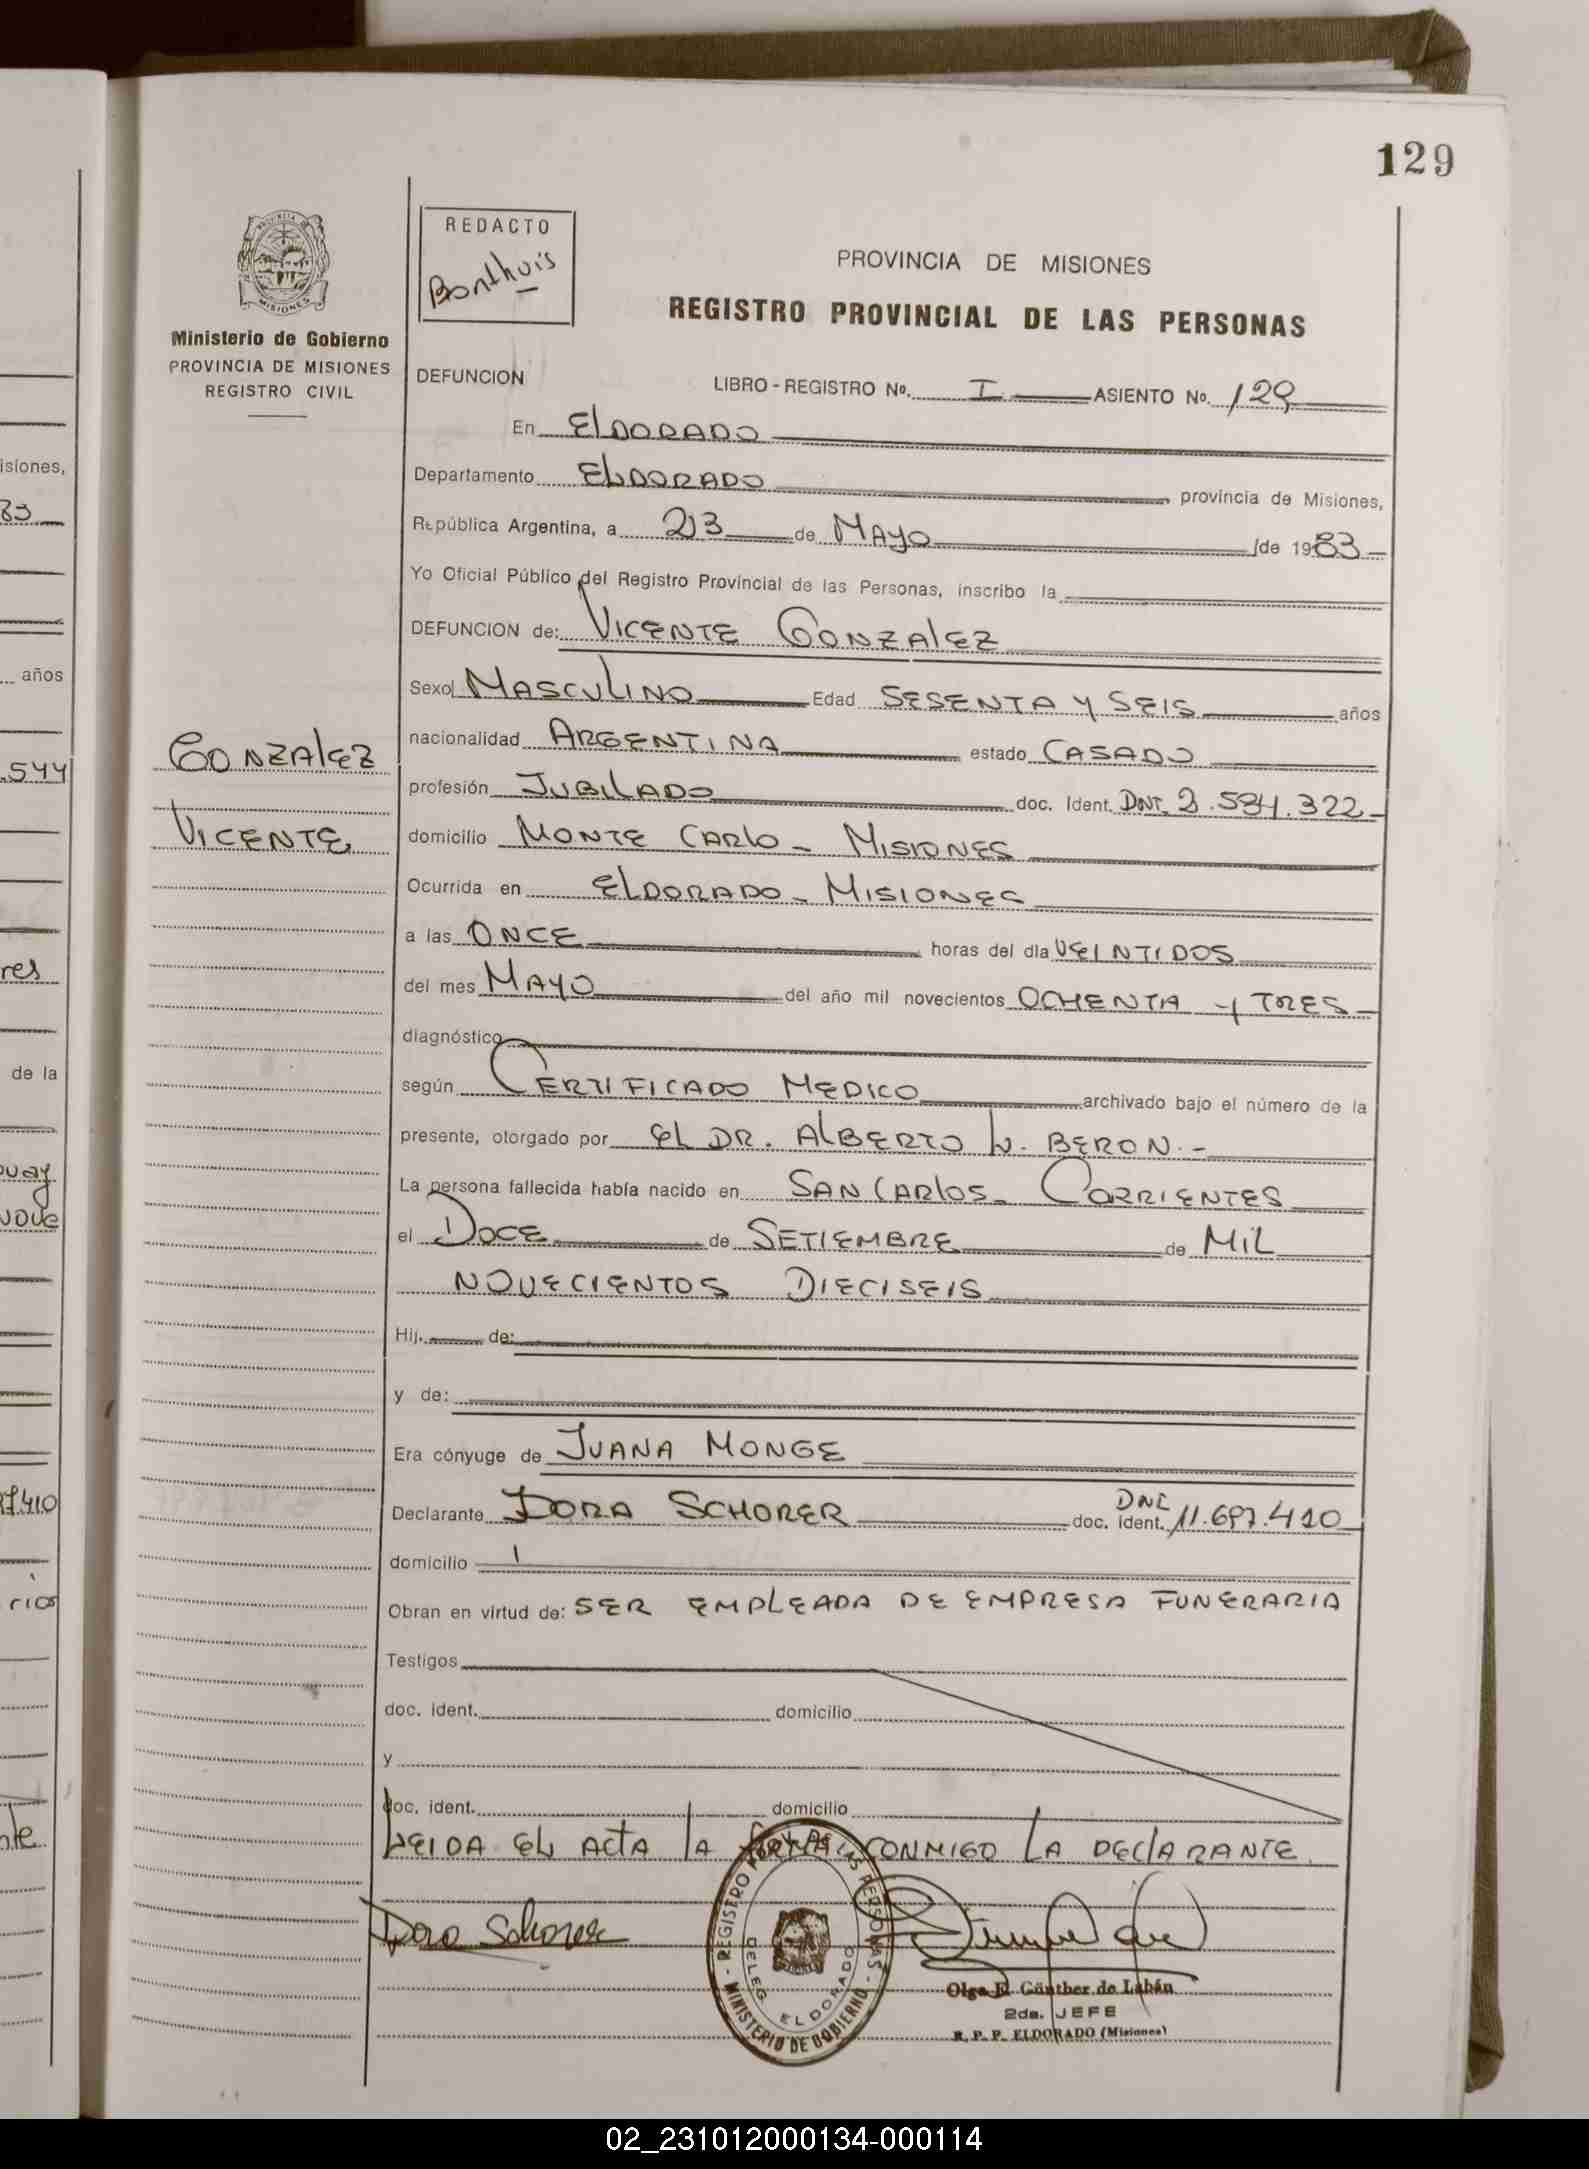 129
REDACTO
Bonthuis
PROVINCIA DE MISIONES
REGISTRO PROVINCIAL DE LAS PERSONAS
MISIONES
Ministerio de Gobierno
PROVINCIA DE MISIONES
REGISTRO CIVIL
DEFUNCION LIBRO - REGISTRO No. I ASIENTO No. 129
En ElDORADO
Departamento ELDORADO provincia de Misiones,
República Argentina, a 23 de MAYO de 1983
Yo Oficial Público del Registro Provincial de las Personas, inscribo la
DEFUNCION de: VICENTE GONZAlEZ
Sexo MASCULINO Edad SESENTA Y SEIS años
nacionalidad ARGENTINA estado CASADO
GONZAlEZ
profesión JUBILADO doc. Ident. DNI. 2.584.322
VICENTE
domicilio MONTE CARlO - MISIONES
Ocurrida en ELDORADO - MISIONES
a las ONCE horas del día VEINTIDOS
del mes MAYO del año mil novecientos OCHENTA y TRES
diagnóstico
según CERTIFICADO MEDICO archivado bajo el número de la
presente, otorgado por EL DR. AlBERTO W. BERON.-
La persona fallecida había nacido en SAN CARlOS - CORRIENTES
el DOCE de SETIEMBRE de MIL
NOVECIENTOS DIECISEIS
Hij. de:
y de:
Era cónyuge de JUANA MONGE
Declarante DORA SCHORER doc. ident. DNI 11.697.410
domicilio
Obran en virtud de: SER EMPLEADA DE EMPRESA FUNERARIA
Testigos
doc. ident. domicilio
y
doc. ident. domicilio
LEIDA EL ACTA lA FIRMA CONMIGO LA DEClARANTE.
Dora Schorer
REGISTRO PROV. DE LAS PERSONAS - MINISTERIO DE GOBIERNO -
DELEG. ELDORADO
Olga E. Günther de Labán
2da. JEFE
R. P. P. ELDORADO (Misiones)
isiones,
83
años
.544
res
de la
uay
nove
87.410
rios
nte
02_231012000134-000114